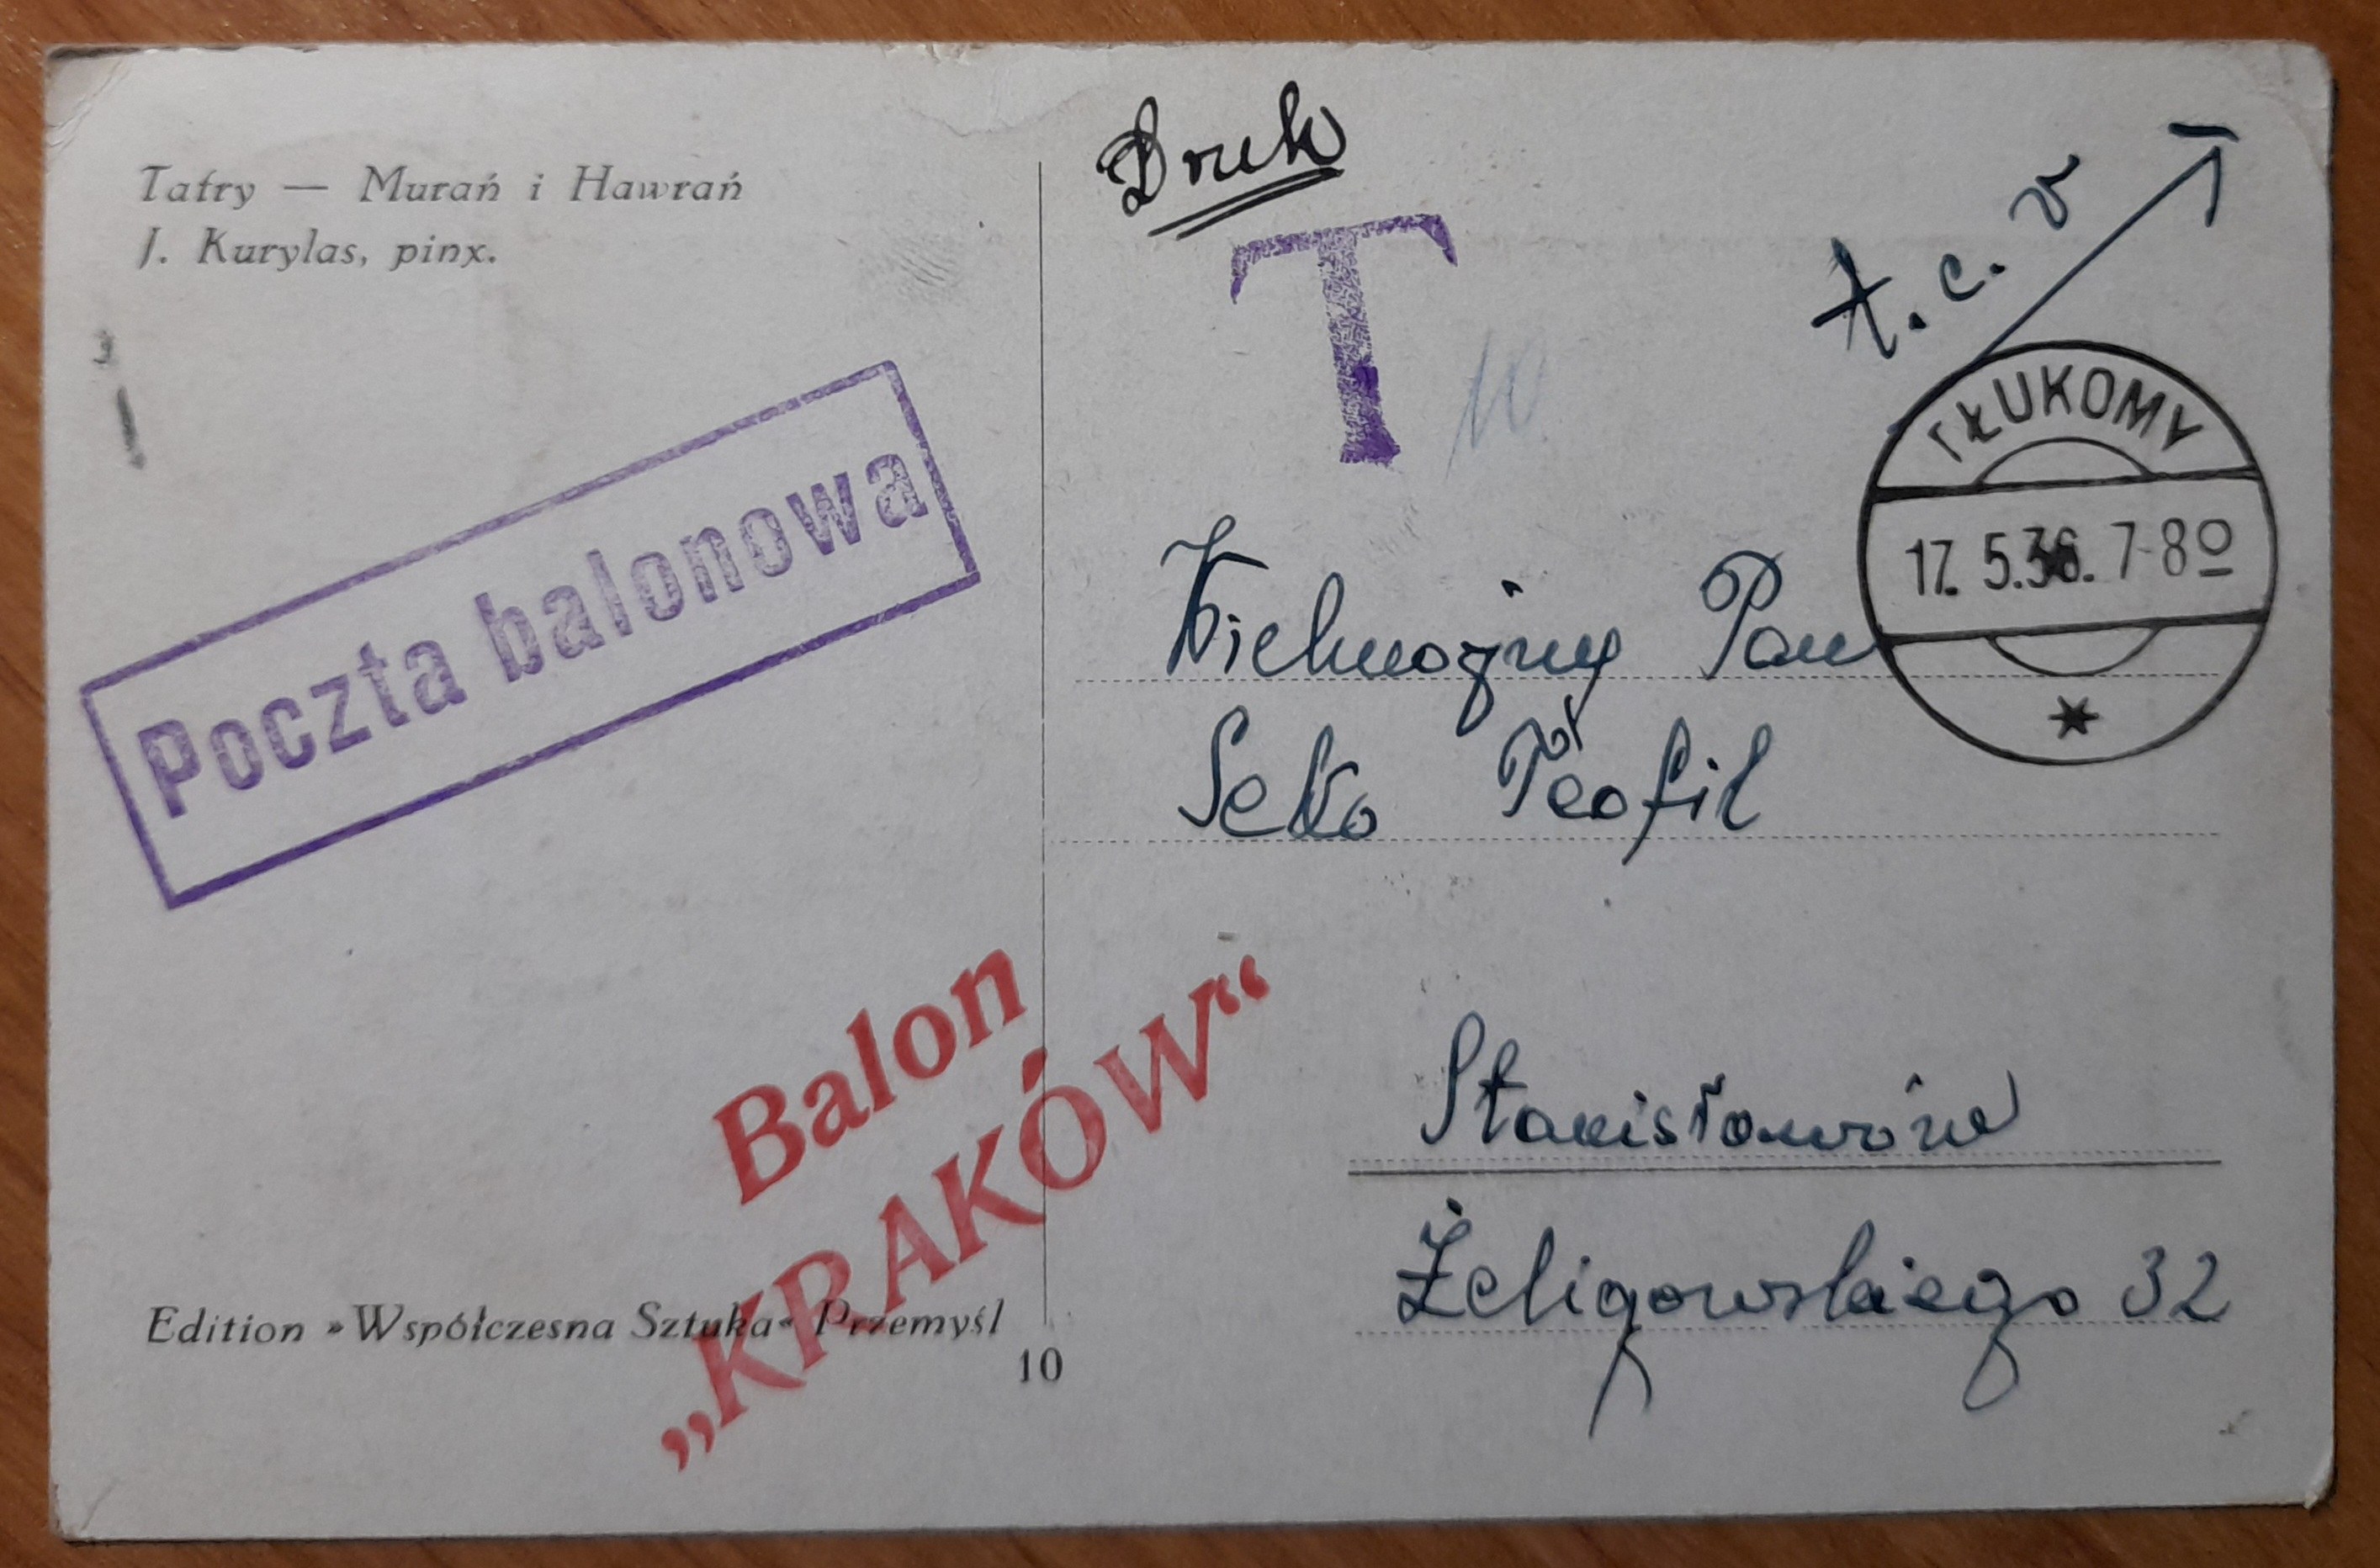 Tatry — Murań i Hawrań
J. Kurylas, pinx.
Poczta balonowa
Balon
„KRAKÓW“
Edition »Współczesna Sztuka« Przemyśl
10
Druk
T
10
t.c.v
TŁUKOMY
17. 5.36. 7-8⁰
Wielmożny Pan
Teofil
Stanisławów
Żeligowskiego 32